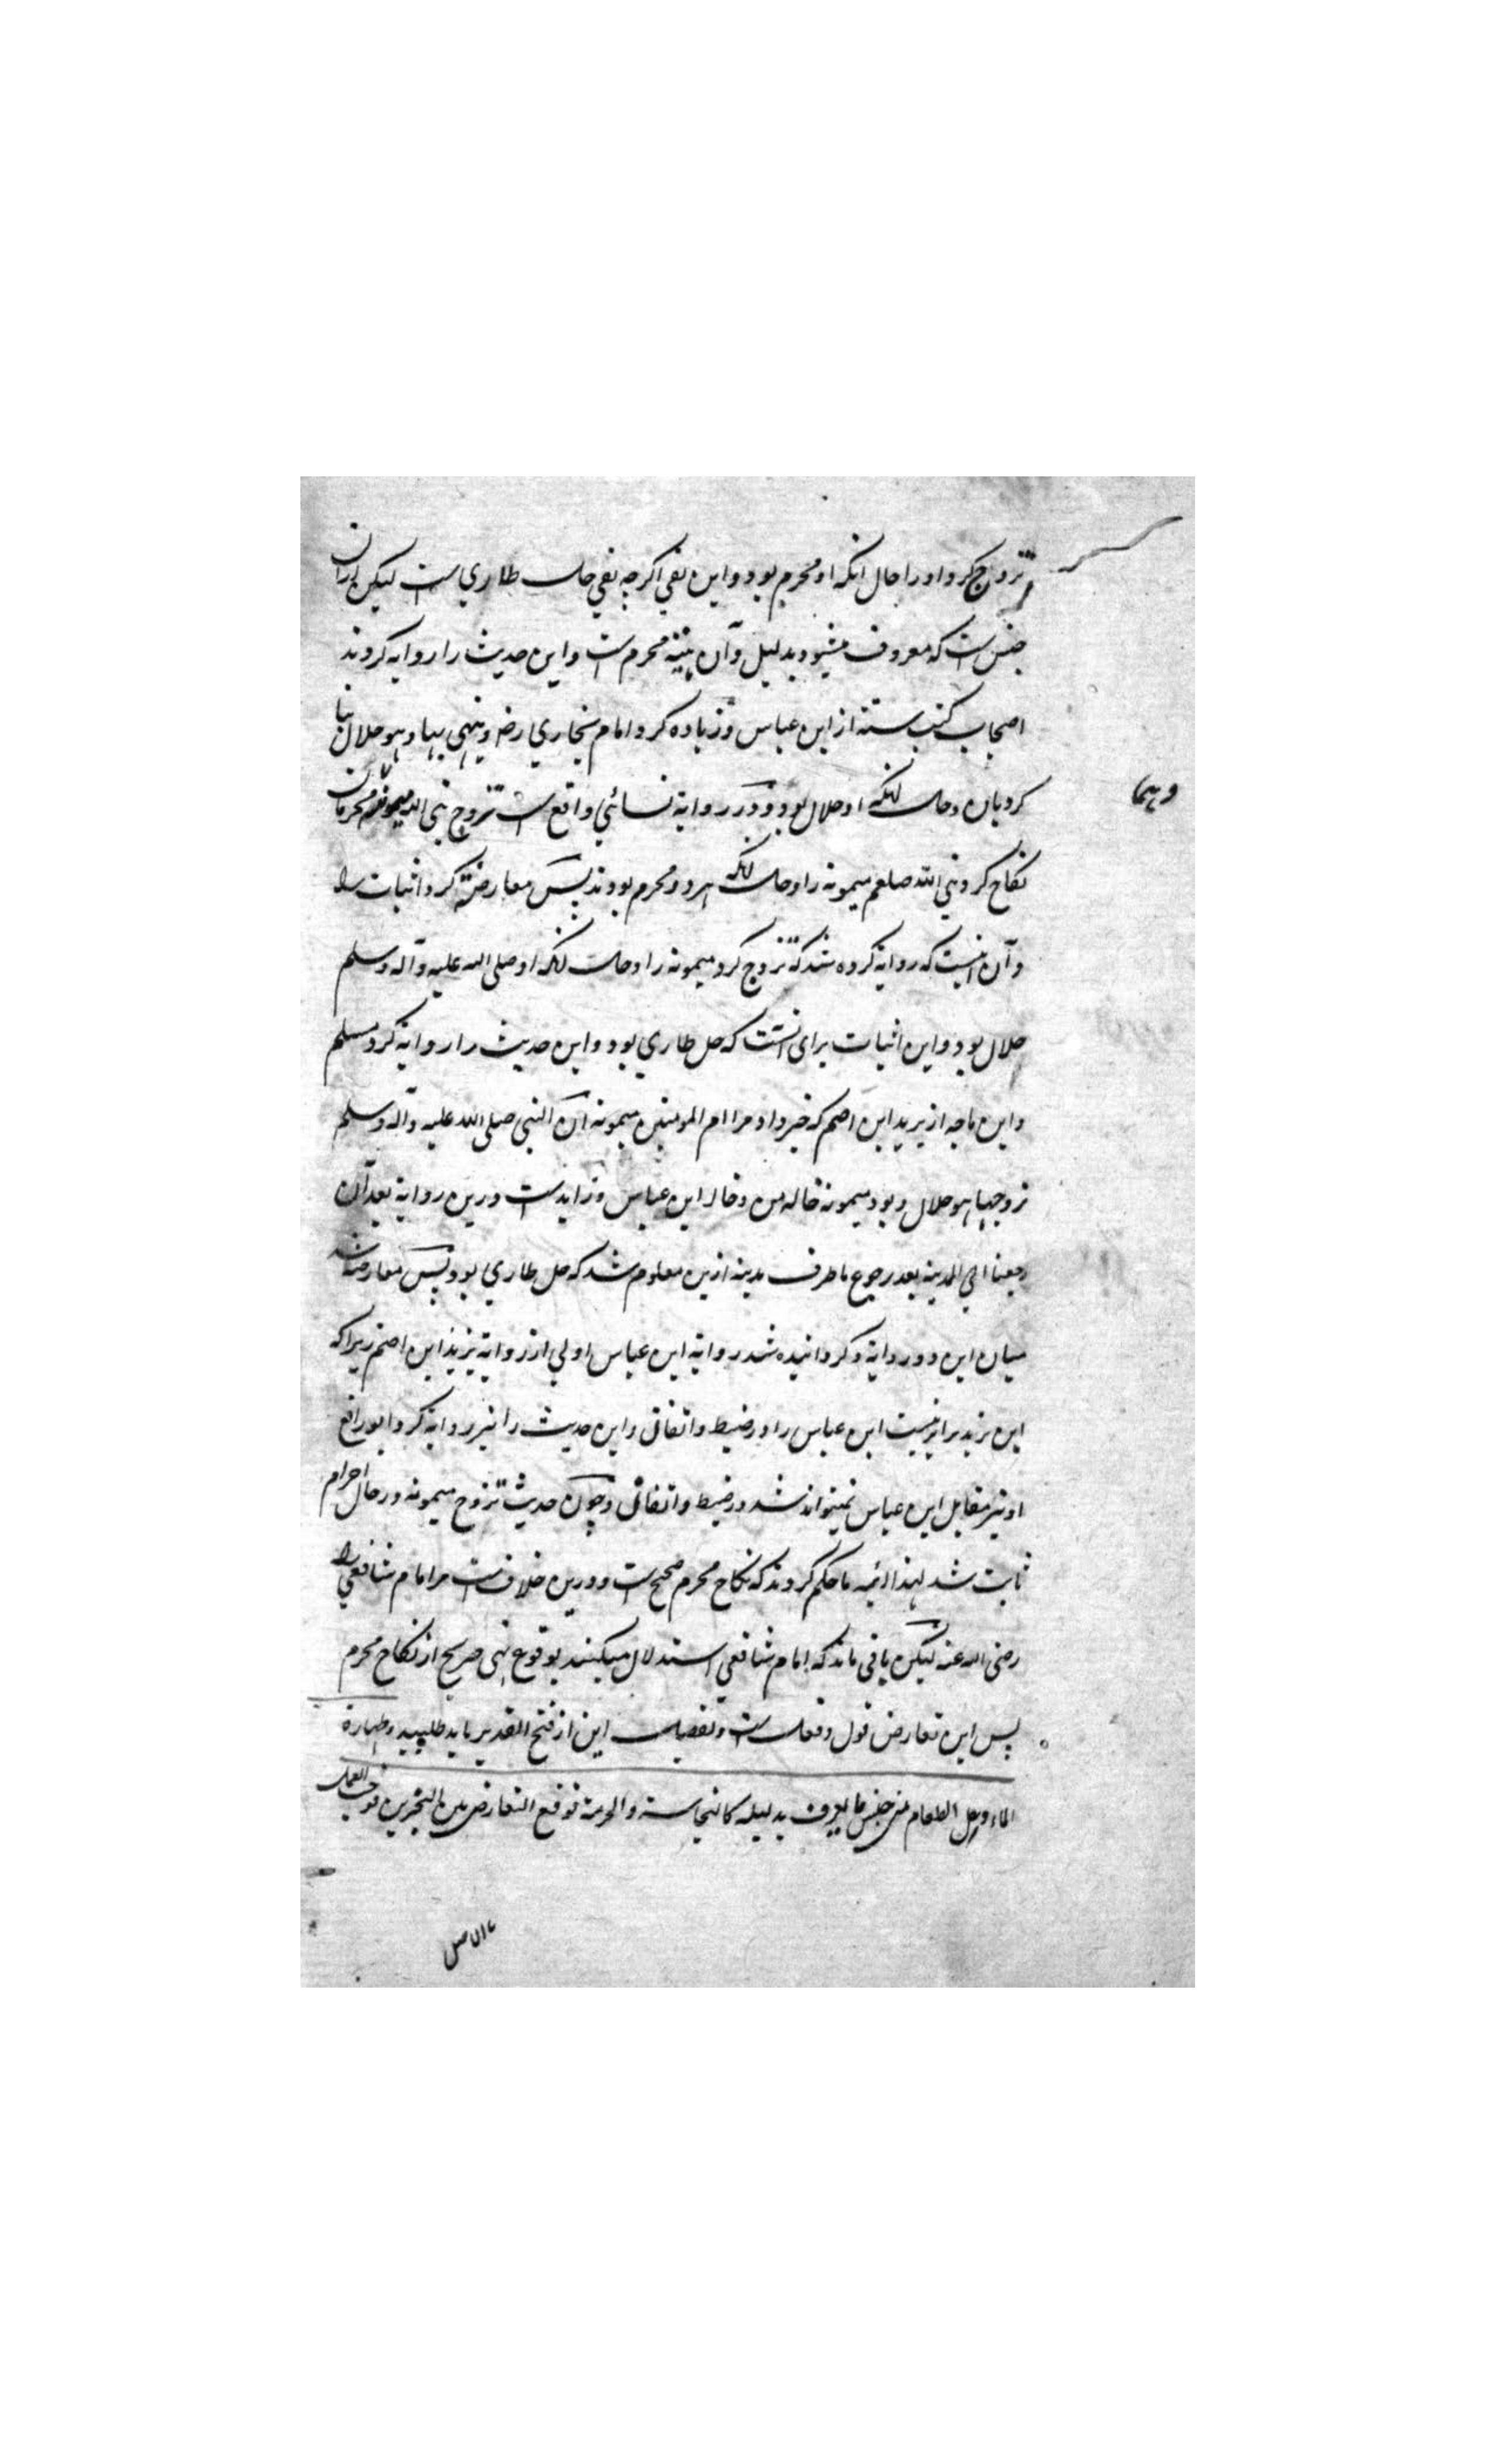 تزوج کرد او را حال انکه او محرم بود و این نفی اکرچه نفی حل طاری است لیکن ازان
جنس است که معروف میشود بدلیل و آن هیئة محرم است و این حدیث را روایه کردند
اصحاب کتب ستة از ابن عباس و زیاده کرد امام بخاری رضه و بنی بها و هو حلال بنا
کرد بان و حال انکه او حلال بود و در روایة نسائی واقع است تزوج نبی الله میمونة محرمان
وهما
نکاح کرد نبی الله صلعم میمونه را و حال انکه هر دو محرم بودند پس معارضة کرد اثبات را
و آن اینست که روایة کرده شد که تزوج کرد میمونه را و حال انکه او صلی الله علیه و آله وسلم
حلال بود و این اثبات برای انست که حل طاری بود و این حدیث را روایة کرد مسلم
و ابن ماجه از یزید ابن اصم که خبر داد مرا ام المومنین میمونه ان النبی صلی الله علیه و آله وسلم
تزوجها و هو حلال و بود میمونه خاله من و خاله ابن عباس و زاید است درین روایة بعد ان
رجعنا الی المدینه بعد رجوع ما طرف مدینه ازین معلوم شد که حل طاری بود پس معارضه شد
میان این دو روایة و کردانیده شد روایة ابن عباس اولی از روایة یزید ابن اصم زیرا که
این یزید برابر نیست ابن عباس را در ضبط و اتقان و این حدیث را نیز روایه کرد ابو رافع
او نیز مقابل ابن عباس نمیتواند شد در ضبط و اتقان و چون حدیث تزوج میمونه در حال احرام
ثابت شد لهذا ائمه ما حکم کردند که نکاح محرم صحیح است و درین خلاف است مر امام شافعی را
رضی الله عنه لیکن باقی ماند که امام شافعی استدلال میکنند بوقوع نهی صریح از نکاح محرم
پس این تعارض قول و فعل است و تفصیل این از فتح القدیر باید طلبید و طهارة
الماء و حل الطعام من جنس ما یعرف بدلیله کالنجاسة والحرمة فوقع التعارض بین الخبرین فوجب العمل
بالاصل